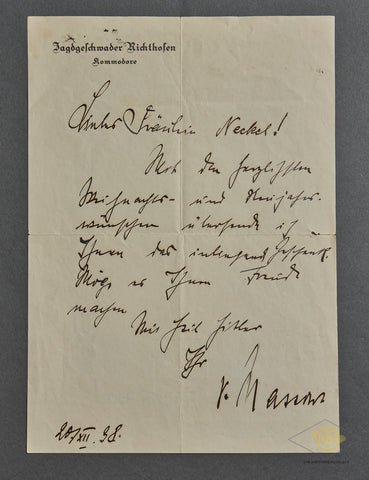 Jagdgeschwader Richthofen
Kommodore
Liebes Fräulein Neckel!
Mit den herzlichsten
Weihnachts- und Neujahrs-
wünschen übersende ich
Ihnen das inliegende Geschenk.
Möge es Ihnen Freude
machen
Mit Heil Hitler
Ihr
v. Massow
20/XII. 38.